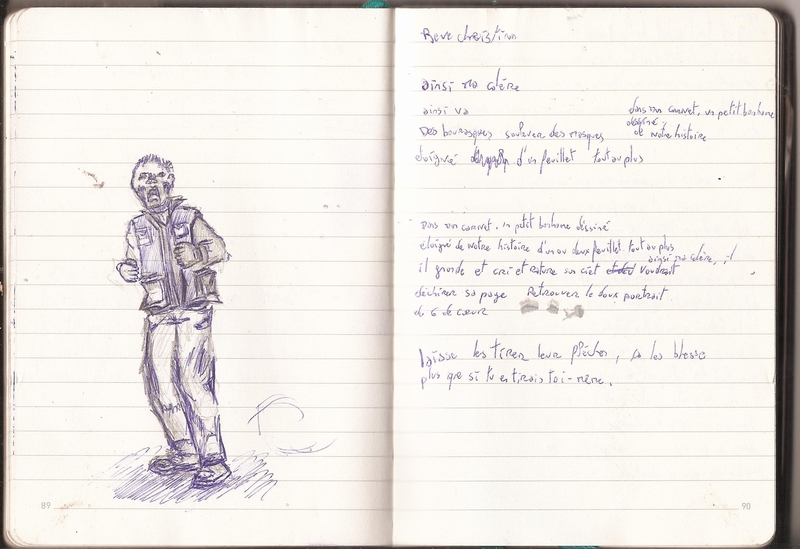 Reve christina
ainsi ma colère
ainsi va
dans mon carnet, un petit bonhome
dessiné
de notre histoire
Des bourrasques soulever des masques
éloigné d'un feuillet tout au plus
Dans mon carnet, un petit bonhome dessiné
éloigné de notre histoire d'un ou deux feuillet tout au plus
ainsi ma colère, il
il gronde et cri et rature son ciel voudrait
déchirer sa page Retrouver le doux portrait
du 6 de cœur
laisse les tirer leur flèches, ça les blesse
plus que si tu en tirais toi-même.
89
90